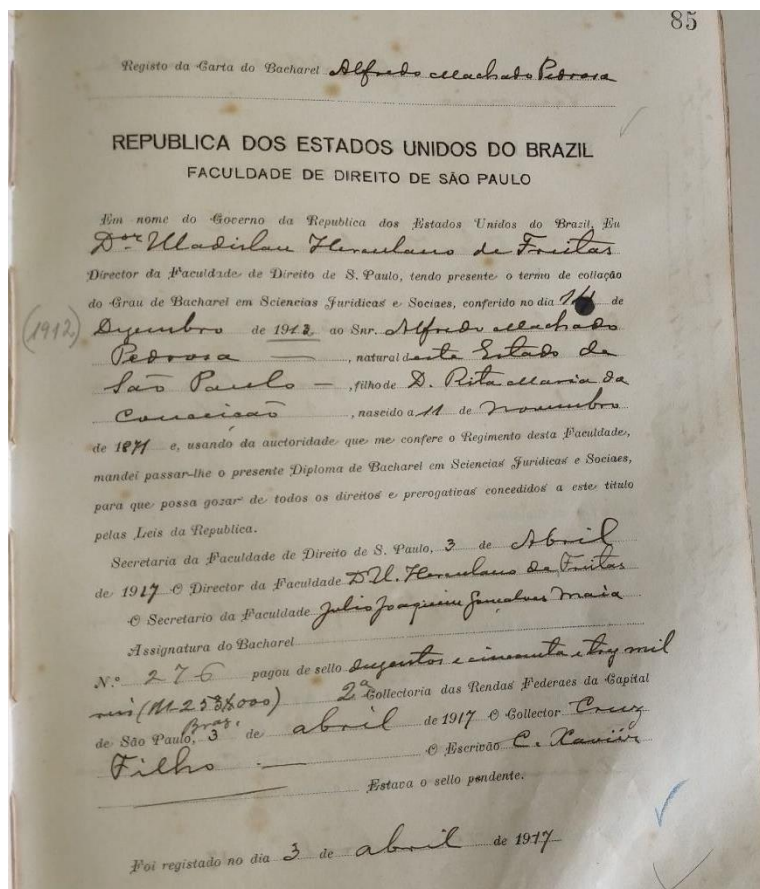 85
Registo da Carta do Bacharel Alfredo Machado Pedrosa
REPUBLICA DOS ESTADOS UNIDOS DO BRAZIL
FACULDADE DE DIREITO DE SÃO PAULO
Em nome do Governo da Republica dos Estados Unidos do Brazil, Eu
Dor. Uladislau Herculano de Freitas
Director da Faculdade de Direito de S. Paulo, tendo presente o termo de collação
do Grau de Bacharel em Sciencias Juridicas e Sociaes, conferido no dia 14 de
(1912) Dezembro de 1912 ao Snr. Alfredo Machado
Pedrosa —, natural deste Estado de
São Paulo —, filho de D. Rita Maria da
Conceição, nascido a 11 de Novembro
de 1871 e, usando da auctoridade que me confere o Regimento desta Faculdade,
mandei passar-lhe o presente Diploma de Bacharel em Sciencias Juridicas e Sociaes,
para que possa gozar de todos os direitos e prerogativas concedidos a este titulo
pelas Leis da Republica.
Secretaria da Faculdade de Direito de S. Paulo, 3 de Abril
de 1917 O Director da Faculdade D U. Herculano de Freitas
O Secretario da Faculdade Julio Joaquim Gonçalves Maia
Assignatura do Bacharel
N.º 276 pagou de sello duzentos e cincoenta e trez mil
reis (253$000) 2ª Collectoria das Rendas Federaes da Capital
Braz,
de São Paulo, 3 de abril de 1917 O Collector Cruz
Filho — O Escrivão C. Xavier
Estava o sello pendente.
Foi registado no dia 3 de abril de 1917